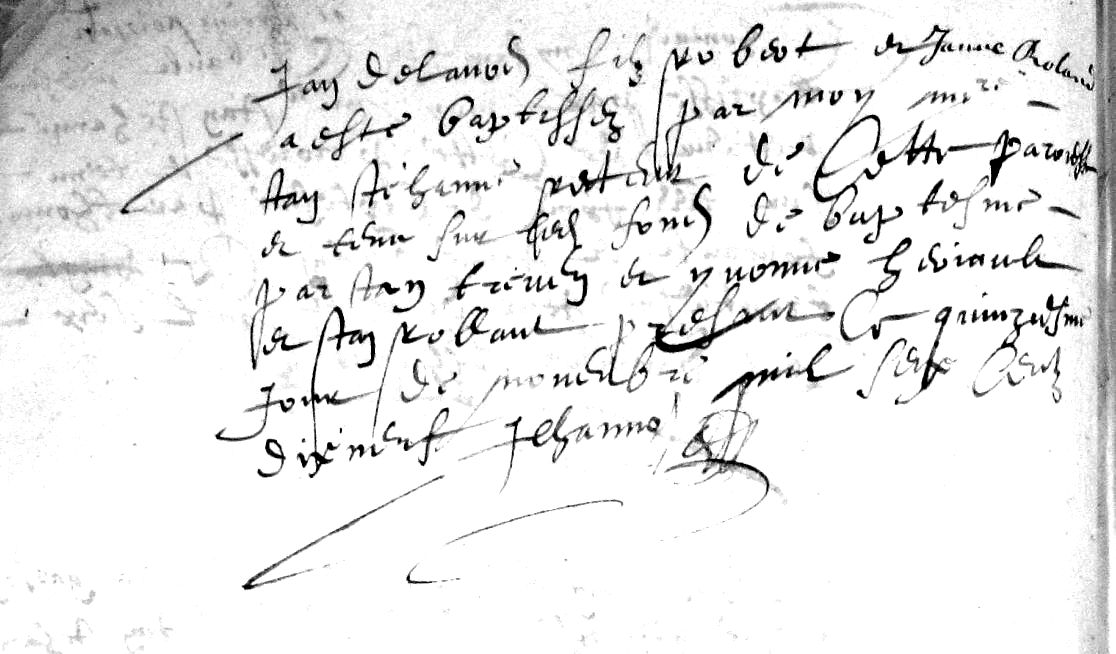 Jan Delanoe filz Robert et Janne Roland
a este baptissez par moy mire
Jan Jehanne recteur de Cette paroisse
et tenu sur les fons de baptesme
par Jan et yvonne heriault
et Jan Rollant presant Ce quinziesme
Jour de novenbre mil seze Centz
dixneuf Jehanno